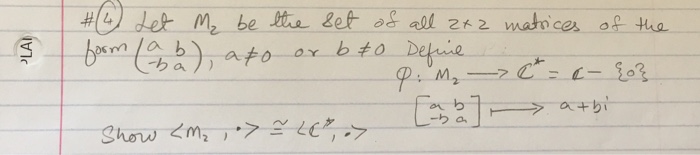 #④ Let M₂ be the set of all 2×2 matrices of the
form (a b -b a), a≠0 or b≠0 Define
φ: M₂ → ℂ* = ℂ - {0}
[a b -b a] ↦ a+bi
Show <M₂, ·> ≅ <ℂ*, ·>